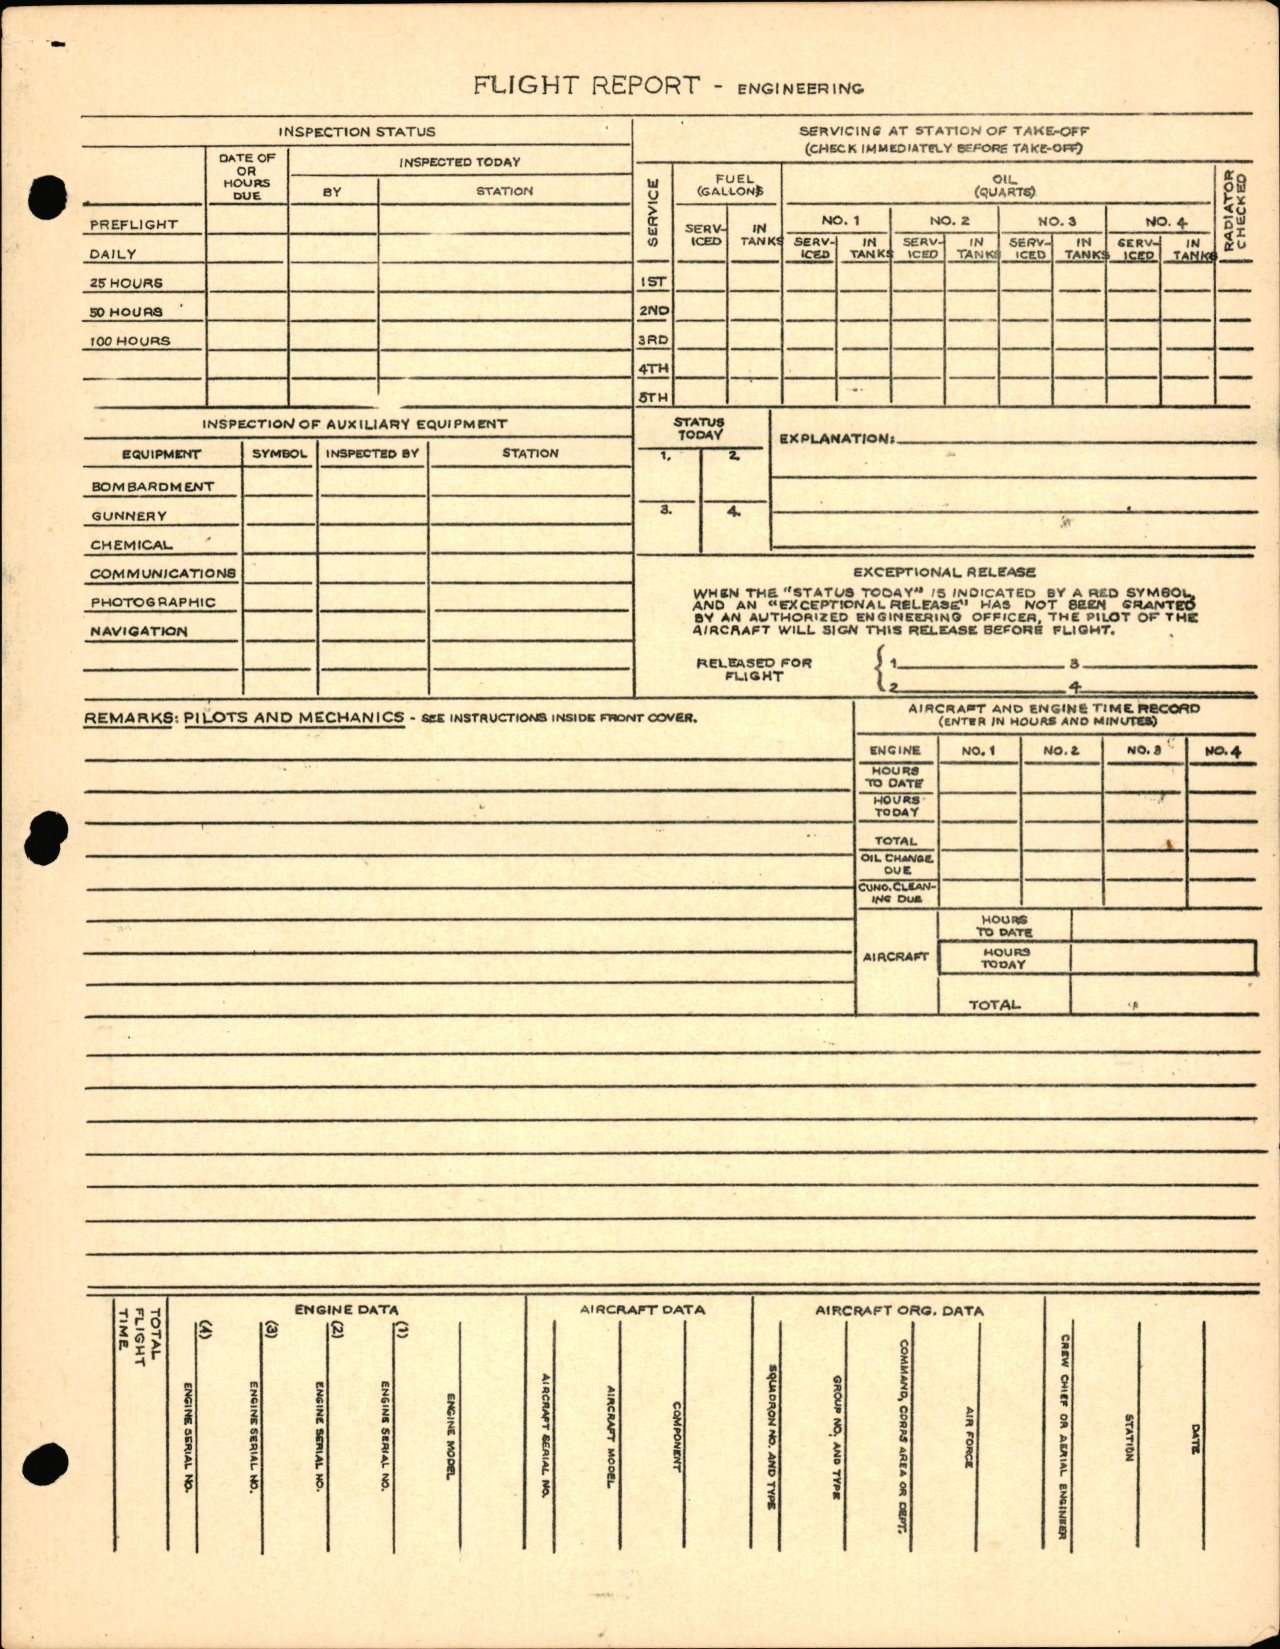 FLIGHT REPORT - ENGINEERING
INSPECTION STATUS
DATE OF
OR
HOURS
DUE
INSPECTED TODAY
BY
STATION
PREFLIGHT
DAILY
25 HOURS
50 HOURS
100 HOURS
SERVICING AT STATION OF TAKE-OFF
(CHECK IMMEDIATELY BEFORE TAKE-OFF)
SERVICE
FUEL
(GALLONS)
OIL
(QUARTS)
RADIATOR
CHECKED
NO. 1
NO. 2
NO. 3
NO. 4
SERV-
ICED
IN
TANKS
SERV-
ICED
IN
TANKS
SERV-
ICED
IN
TANKS
SERV-
ICED
IN
TANKS
SERV-
ICED
IN
TANKS
1ST
2ND
3RD
4TH
5TH
INSPECTION OF AUXILIARY EQUIPMENT
EQUIPMENT
SYMBOL
INSPECTED BY
STATION
BOMBARDMENT
GUNNERY
CHEMICAL
COMMUNICATIONS
PHOTOGRAPHIC
NAVIGATION
STATUS
TODAY
1.
2.
3.
4.
EXPLANATION:
EXCEPTIONAL RELEASE
WHEN THE "STATUS TODAY" IS INDICATED BY A RED SYMBOL
AND AN "EXCEPTIONAL RELEASE" HAS NOT BEEN GRANTED
BY AN AUTHORIZED ENGINEERING OFFICER, THE PILOT OF THE
AIRCRAFT WILL SIGN THIS RELEASE BEFORE FLIGHT.
RELEASED FOR
FLIGHT
1
3
2
4
REMARKS: PILOTS AND MECHANICS - SEE INSTRUCTIONS INSIDE FRONT COVER.
AIRCRAFT AND ENGINE TIME RECORD
(ENTER IN HOURS AND MINUTES)
ENGINE
NO. 1
NO. 2
NO. 3
NO. 4
HOURS
TO DATE
HOURS
TODAY
TOTAL
OIL CHANGE
DUE
CUNO. CLEAN-
ING DUE
AIRCRAFT
HOURS
TO DATE
HOURS
TODAY
TOTAL
TOTAL
FLIGHT
TIME
ENGINE DATA
(4)
ENGINE SERIAL NO.
(3)
ENGINE SERIAL NO.
(2)
ENGINE SERIAL NO.
(1)
ENGINE SERIAL NO.
ENGINE MODEL
AIRCRAFT DATA
AIRCRAFT SERIAL NO.
AIRCRAFT MODEL
COMPONENT
AIRCRAFT ORG. DATA
SQUADRON NO. AND TYPE
GROUP NO. AND TYPE
COMMAND, CORPS AREA OR DEPT.
AIR FORCE
CREW CHIEF OR AERIAL ENGINEER
STATION
DATE